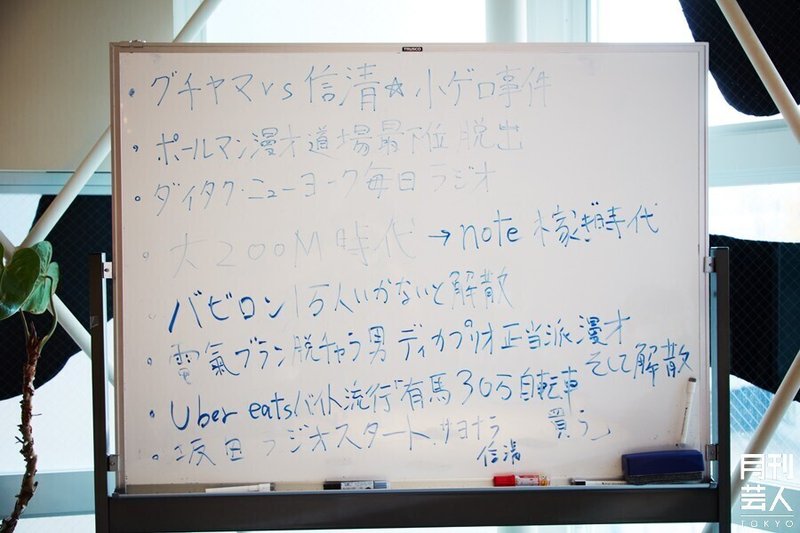 TRUSCO
・グチヤマvs信清☆小ゲロ事件
・ポールマン漫才道場最下位脱出
・ダイタク・ニューヨーク毎日ラジオ
・大ZOOM時代→note稼ぎ時代
・バビロン1万人いかないと解散
・電氣ブラン脱チャラ男 ディカプリオ正当派漫才
そして解散
・Uber eatsバイト流行「有馬30万自転車
買う」
・坂田ラジオスタート、サヨナラ
信濃
月刊
芸人
TOKYO